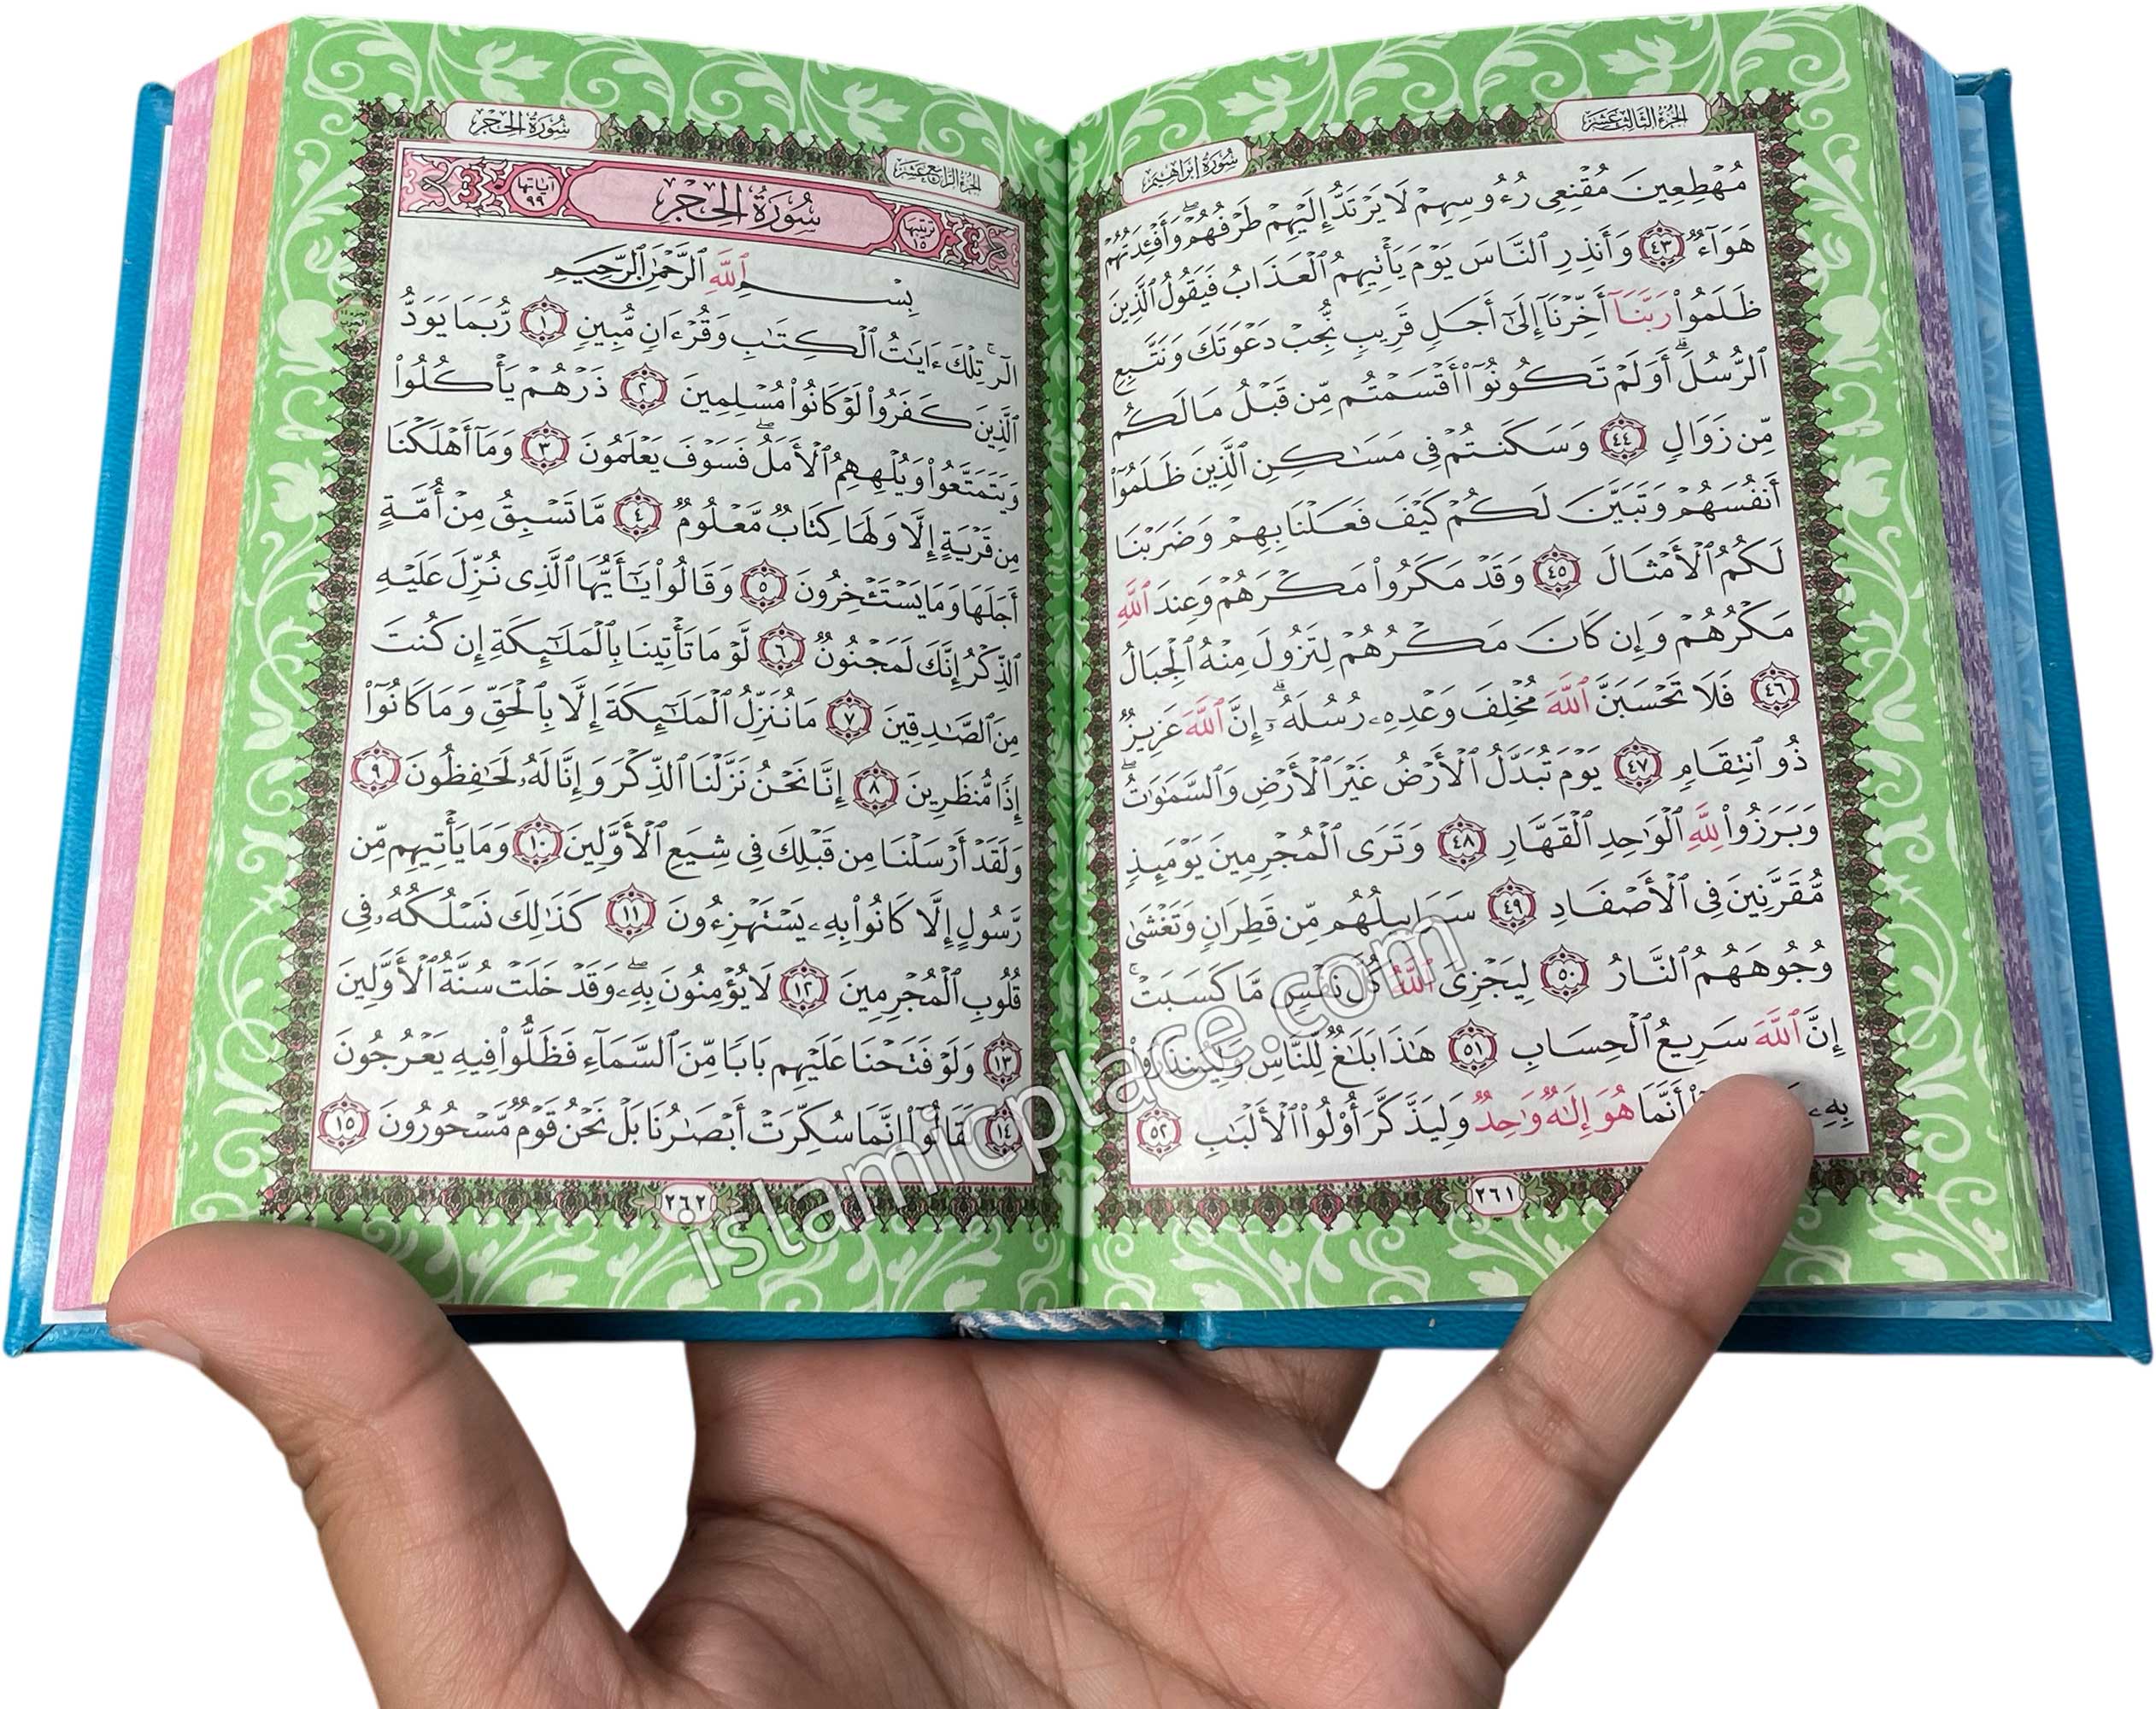 الجزء الثالث عشر
سورة إبراهيم
مُهْطِعِينَ مُقْنِعِى رُءُوسِهِمْ لَا يَرْتَدُّ إِلَيْهِمْ طَرْفُهُمْ ۖ وَأَفْـِٔدَتُهُمْ
هَوَآءٌ ٤٣ وَأَنذِرِ ٱلنَّاسَ يَوْمَ يَأْتِيهِمُ ٱلْعَذَابُ فَيَقُولُ ٱلَّذِينَ
ظَلَمُوا۟ رَبَّنَآ أَخِّرْنَآ إِلَىٰٓ أَجَلٍ قَرِيبٍ نُّجِبْ دَعْوَتَكَ وَنَتَّبِعِ
ٱلرُّسُلَ ۗ أَوَلَمْ تَكُونُوٓا۟ أَقْسَمْتُم مِّن قَبْلُ مَا لَكُم
مِّن زَوَالٍ ٤٤ وَسَكَنتُمْ فِى مَسَـٰكِنِ ٱلَّذِينَ ظَلَمُوٓا۟
أَنفُسَهُمْ وَتَبَيَّنَ لَكُمْ كَيْفَ فَعَلْنَا بِهِمْ وَضَرَبْنَا
لَكُمُ ٱلْأَمْثَالَ ٤٥ وَقَدْ مَكَرُوا۟ مَكْرَهُمْ وَعِندَ ٱللَّهِ
مَكْرُهُمْ وَإِن كَانَ مَكْرُهُمْ لِتَزُولَ مِنْهُ ٱلْجِبَالُ
٤٦ فَلَا تَحْسَبَنَّ ٱللَّهَ مُخْلِفَ وَعْدِهِۦ رُسُلَهُۥٓ ۗ إِنَّ ٱللَّهَ عَزِيزٌ
ذُو ٱنتِقَامٍ ٤٧ يَوْمَ تُبَدَّلُ ٱلْأَرْضُ غَيْرَ ٱلْأَرْضِ وَٱلسَّمَـٰوَٰتُ ۖ
وَبَرَزُوا۟ لِلَّهِ ٱلْوَٰحِدِ ٱلْقَهَّارِ ٤٨ وَتَرَى ٱلْمُجْرِمِينَ يَوْمَئِذٍ
مُّقَرَّنِينَ فِى ٱلْأَصْفَادِ ٤٩ سَرَابِيلُهُم مِّن قَطِرَانٍ وَتَغْشَىٰ
وُجُوهَهُمُ ٱلنَّارُ ٥٠ لِيَجْزِىَ ٱللَّهُ كُلَّ نَفْسٍ مَّا كَسَبَتْ ۚ
إِنَّ ٱللَّهَ سَرِيعُ ٱلْحِسَابِ ٥١ هَـٰذَا بَلَـٰغٌ لِّلنَّاسِ وَلِيُنذَرُوا۟
بِهِۦ أَنَّمَا هُوَ إِلَـٰهٌ وَٰحِدٌ وَلِيَذَّكَّرَ أُو۟لُوا۟ ٱلْأَلْبَـٰبِ ٥٢
٢٦١
الجزء الرابع عشر
سورة الحجر
ترتيبها ١٥
سورة الحجر
آياتها ٩٩
بِسْمِ ٱللَّهِ ٱلرَّحْمَـٰنِ ٱلرَّحِيمِ
الٓر ۚ تِلْكَ ءَايَـٰتُ ٱلْكِتَـٰبِ وَقُرْءَانٍ مُّبِينٍ ١ رُّبَمَا يَوَدُّ
ٱلَّذِينَ كَفَرُوا۟ لَوْ كَانُوا۟ مُسْلِمِينَ ٢ ذَرْهُمْ يَأْكُلُوا۟
وَيَتَمَتَّعُوا۟ وَيُلْهِهِمُ ٱلْأَمَلُ ۖ فَسَوْفَ يَعْلَمُونَ ٣ وَمَآ أَهْلَكْنَا
مِن قَرْيَةٍ إِلَّا وَلَهَا كِتَابٌ مَّعْلُومٌ ٤ مَّا تَسْبِقُ مِنْ أُمَّةٍ
أَجَلَهَا وَمَا يَسْتَـْٔخِرُونَ ٥ وَقَالُوا۟ يَـٰٓأَيُّهَا ٱلَّذِى نُزِّلَ عَلَيْهِ
ٱلذِّكْرُ إِنَّكَ لَمَجْنُونٌ ٦ لَّوْ مَا تَأْتِينَا بِٱلْمَلَـٰٓئِكَةِ إِن كُنتَ
مِنَ ٱلصَّـٰدِقِينَ ٧ مَا نُنَزِّلُ ٱلْمَلَـٰٓئِكَةَ إِلَّا بِٱلْحَقِّ وَمَا كَانُوٓا۟
إِذًا مُّنظَرِينَ ٨ إِنَّا نَحْنُ نَزَّلْنَا ٱلذِّكْرَ وَإِنَّا لَهُۥ لَحَـٰفِظُونَ ٩
وَلَقَدْ أَرْسَلْنَا مِن قَبْلِكَ فِى شِيَعِ ٱلْأَوَّلِينَ ١٠ وَمَا يَأْتِيهِم مِّن
رَّسُولٍ إِلَّا كَانُوا۟ بِهِۦ يَسْتَهْزِءُونَ ١١ كَذَٰلِكَ نَسْلُكُهُۥ فِى
قُلُوبِ ٱلْمُجْرِمِينَ ١٢ لَا يُؤْمِنُونَ بِهِۦ ۖ وَقَدْ خَلَتْ سُنَّةُ ٱلْأَوَّلِينَ
١٣ وَلَوْ فَتَحْنَا عَلَيْهِم بَابًا مِّنَ ٱلسَّمَآءِ فَظَلُّوا۟ فِيهِ يَعْرُجُونَ
١٤ لَقَالُوٓا۟ إِنَّمَا سُكِّرَتْ أَبْصَـٰرُنَا بَلْ نَحْنُ قَوْمٌ مَّسْحُورُونَ ١٥
٢٦٢
islamicplace.com